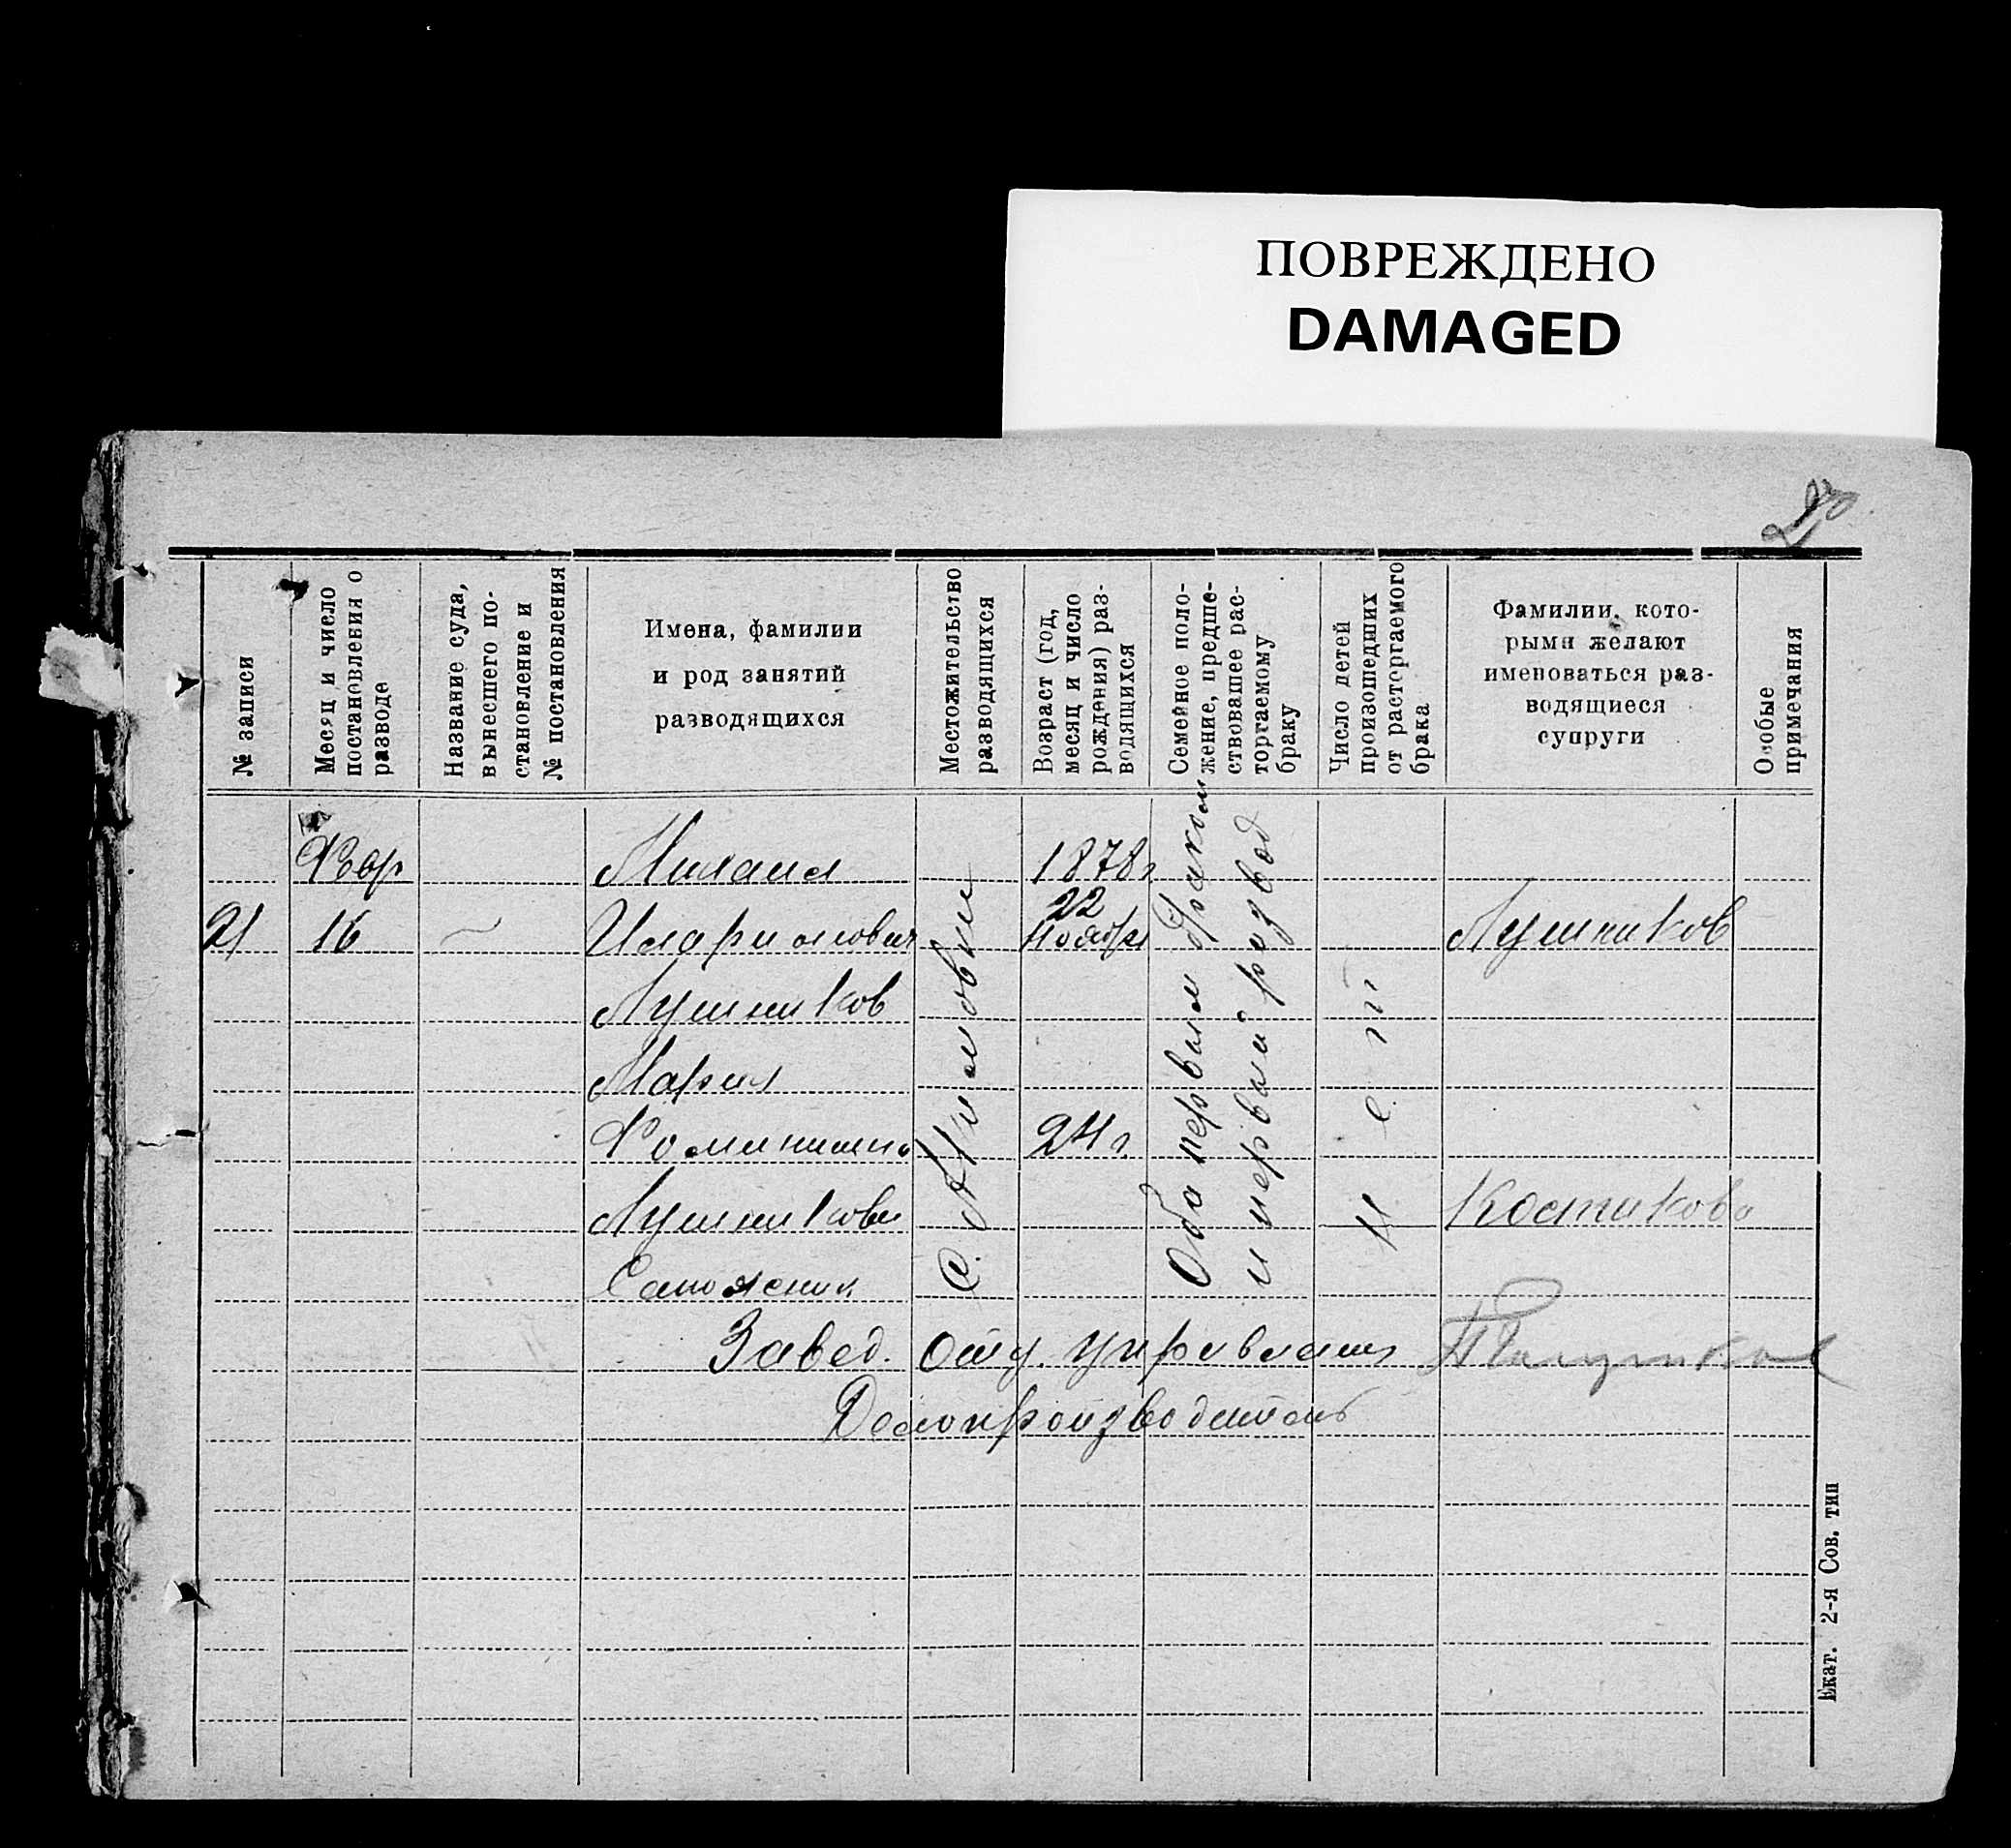 ПОВРЕЖДЕНО
DAMAGED
№ записи
Месяц и число
постановления о
разводе
Название суда,
вынесшего по-
становление и
№ постановления
Имена, фамилии
и род занятий
разводящихся
Местожительство
разводящихся
Возраст (год,
месяц и число
рождения) раз-
водящихся
Семейное поло-
жение, предше-
ствовавшее рас-
торгаемому
браку
Число детей
происшедших
от расторгаемого
брака
Фамилии, кото-
рыми желают
именоваться раз-
водящиеся
супруги
Особые
примечания
21
16
Михаил
Иларионович
Лушников
Мария
Лушникова
Сапожник
1878 г
22
Ноября
24 г.
Оба первым браком
и первый развод
Нет
Лушников
Костикова
Завед. Отд. Управления
Делопроизводитель
Екат. 2-я Сов. тип